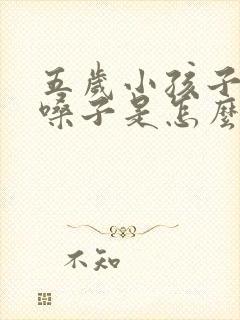 五歲小孩子
嗓子是怎麼
不知